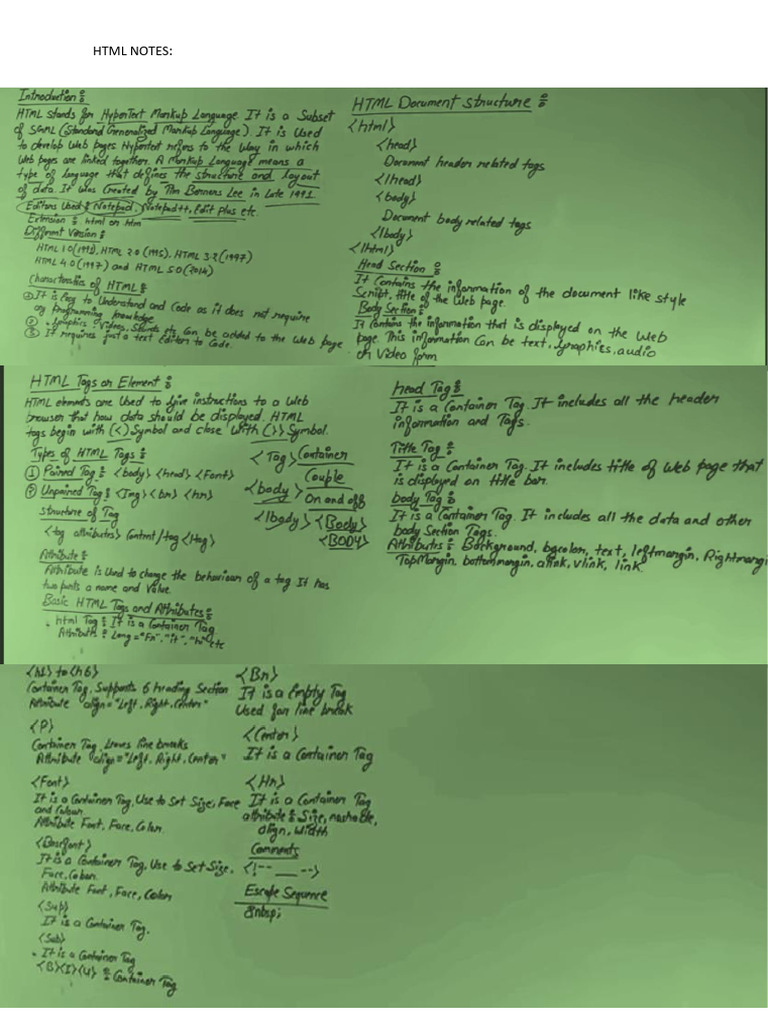 HTML NOTES:
Introduction :
HTML stands for HyperText Markup Language. It is a Subset
of SGML (Standard Generalized Markup Language). It is Used
to develop Web pages Hypertext refers to the Way in which
Web pages are linked together. A Markup Language means a
type of language that defines the structure and layout
of data. It was Created by Tim Berners Lee in Late 1991
Editors Used : Notepad, Notepad++, Edit plus etc.
Extension : html or htm
Different Version :
HTML 1.0 (1991), HTML 2.0 (1995), HTML 3.2 (1997)
HTML 4.0 (1997) and HTML 5.0 (2014)
Characteristics of HTML :
① It is Easy to Understand and Code as it does not require
any programming knowledge
② Graphics Videos, Sounds etc. Can be added to the Web page
③ It requires just a text Editors to Code.
HTML Document Structure :
<html>
<head>
Document header related tags
</head>
<body>
Document body related tags
</body>
</html>
Head Section :
It Contains the information of the document like style
Script, title of the Web page.
Body Section :
It Contains the information that is displayed on the Web
page. This information Can be text, graphics, audio
or Video form
HTML Tags or Element :
HTML elements are Used to give instructions to a Web
browser that how data should be displayed. HTML
tags begin with (<) Symbol and close with (>) Symbol.
Types of HTML Tags :
① Paired Tag : <body> <head> <Font>
② Unpaired Tag : <Img> <br> <hr>
Structure of Tag
<tag attributes> Content/tag </tag>
Attribute :
Attribute is Used to change the behaviour of a tag It has
two parts a name and Value
Basic HTML Tags and Attributes :
html Tag : It is a Container Tag
Attributes : Lang = "Fr", "it", "hi" etc
<Tag> Container
Couple
<body> On and off
</body> <Body>
<BODY>
head Tag :
It is a Container Tag. It includes all the header
information and Tags.
Title Tag :
It is a Container Tag. It includes title of web page that
is displayed on title bar.
body Tag :
It is a Container Tag. It includes all the data and other
body Section Tags.
Attributes : Background, bgcolor, text, leftmargin, Rightmargin
TopMargin, bottommargin, alink, vlink, link
<h1> to <h6>
Container Tag, Supports 6 heading Section
Attribute align="Left, Right, Center"
<P>
Container Tag, Leaves line breaks
Attribute align="Left, Right, Center"
<Font>
It is a Container Tag, Use to Set Size, Face
and Colour.
Attribute Font, Face, Color.
<Basefont>
It is a Container Tag, Use to Set Size,
Face, Color.
Attribute Font, Face, Color
<Sup>
It is a Container Tag.
<Sub>
It is a Container Tag
<B><I><U> : Container Tag
<Br>
It is a Empty Tag
Used for line break
<Center>
It is a Container Tag
<Hr>
It is a Container Tag
attribute : Size, noshade,
align, width
Comments
<!-- __ -->
Escape Sequence
&nbsp;